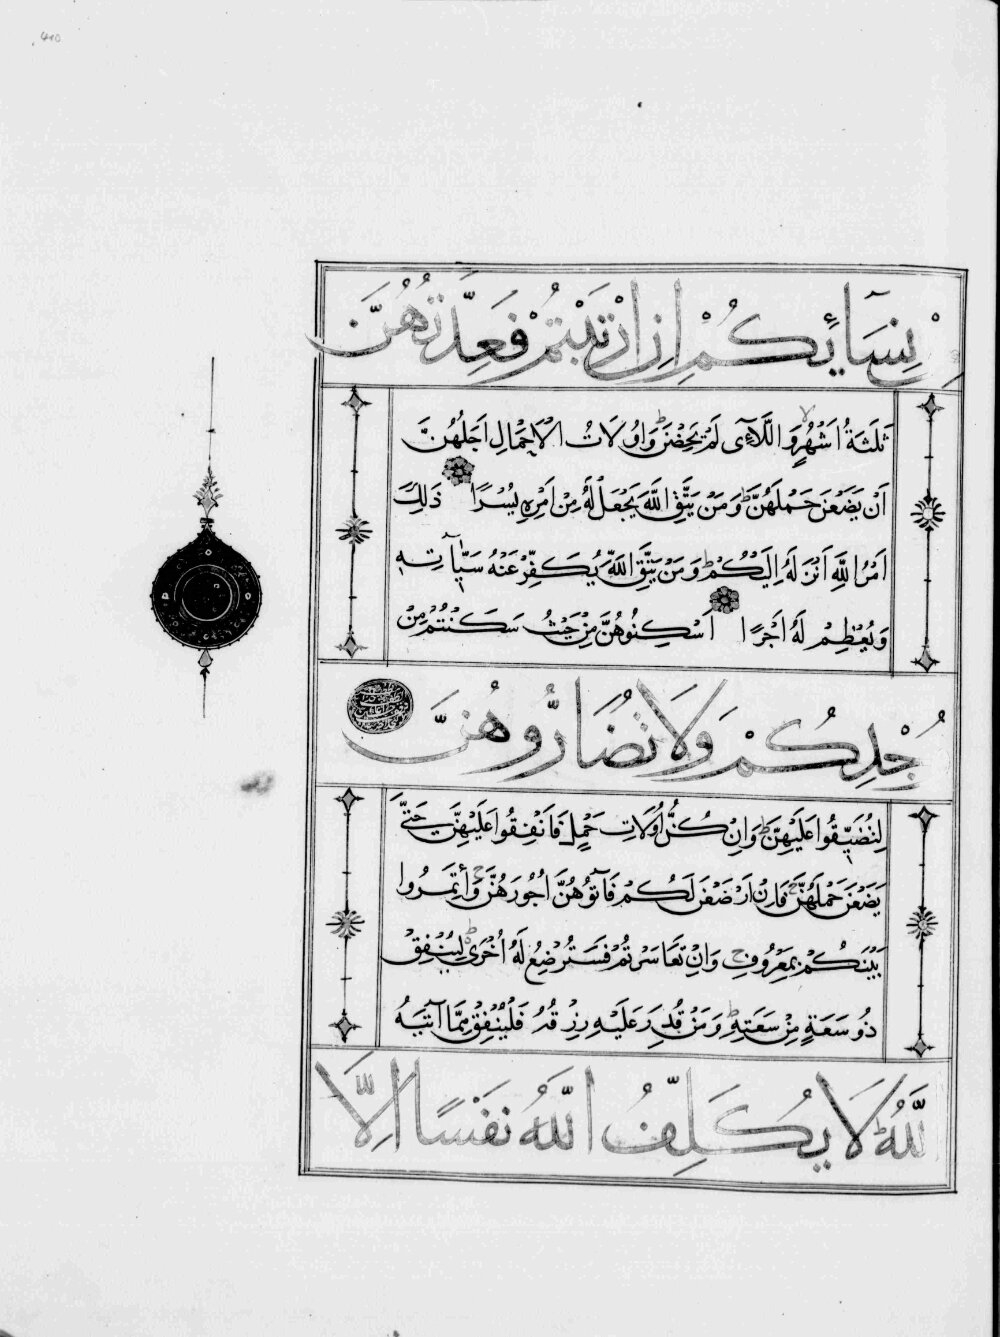 410
نِسَائِكُمْ اِنِ ارْتَبْتُمْ فَعِدَّتُهُنَّ
ثَلٰثَةُ اَشْهُرٍ وَاللَّآءِى لَمْ يَحِضْنَ ط وَاُولَاتُ الْاَحْمَالِ اَجَلُهُنَّ
اَنْ يَضَعْنَ حَمْلَهُنَّ ط وَمَنْ يَتَّقِ اللّٰهَ يَجْعَلْ لَهُ مِنْ اَمْرِهِ يُسْرًا ذٰلِكَ
اَمْرُ اللّٰهِ اَنْزَلَهُ اِلَيْكُمْ ط وَمَنْ يَتَّقِ اللّٰهَ يُكَفِّرْ عَنْهُ سَيِّاٰتِهِ
وَيُعْظِمْ لَهُ اَجْرًا اَسْكِنُوهُنَّ مِنْ حَيْثُ سَكَنْتُمْ مِنْ
وُجْدِكُمْ وَلَا تُضَارُّوهُنَّ
لِتُضَيِّقُوا عَلَيْهِنَّ ط وَاِنْ كُنَّ اُولَاتِ حَمْلٍ فَاَنْفِقُوا عَلَيْهِنَّ حَتّٰى
يَضَعْنَ حَمْلَهُنَّ ج فَاِنْ اَرْضَعْنَ لَكُمْ فَاٰتُوهُنَّ اُجُورَهُنَّ ج وَأْتَمِرُوا
بَيْنَكُمْ بِمَعْرُوفٍ ج وَاِنْ تَعَاسَرْتُمْ فَسَتُرْضِعُ لَهُ اُخْرٰى ط لِيُنْفِقْ
ذُو سَعَةٍ مِنْ سَعَتِهِ ط وَمَنْ قُدِرَ عَلَيْهِ رِزْقُهُ فَلْيُنْفِقْ مِمَّا آتٰيهُ
اللّٰهُ ط لَا يُكَلِّفُ اللّٰهُ نَفْسًا اِلَّا